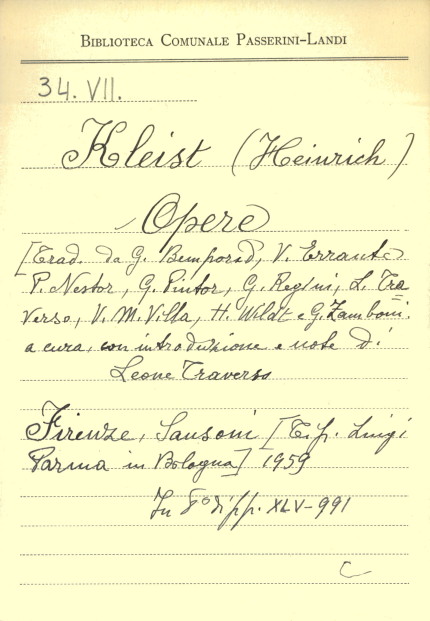 BIBLIOTECA COMUNALE PASSERINI-LANDI
34. VII.
Kleist (Heinrich)
Opere
[Trad. da G. Bemporad, V. Errante
P. Nestor, G. Pintor, G. Regini, L. Tra
verso, V. M. Villa, H. Wildt e G. Zamboni.
a cura, con introduzione e note di
Leone Traverso
Firenze, Sansoni [Tip. Luigi
Parma in Bologna] 1959
In 8° di pp. XLV-991
C